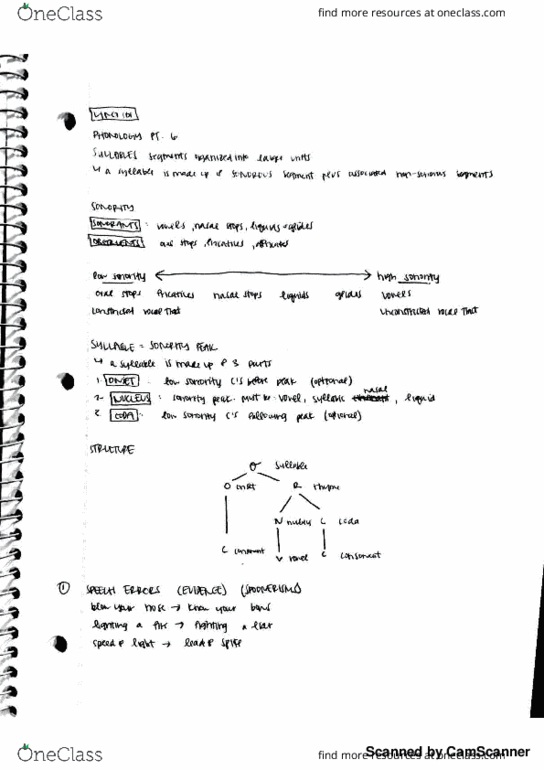 OneClass
find more resources at oneclass.com
PHONOLOGY PT. 6
SYLLABLES segments organized into larger units
↳ a syllable is made up of SONOROUS segment plus associated non-sonorous segments
SONORITY
SONORANTS : vowels, nasal stops, liquids + glides
OBSTRUENTS : oral stops, fricatives, affricates
low sonority ↔ high sonority
oral stops fricatives nasal stops liquids glides vowels
constricted vocal tract unconstricted vocal tract
SYLLABLE = SONORITY PEAK
↳ a syllable is made up of 3 parts
1. ONSET : low sonority C's before peak (optional)
2. NUCLEUS : sonority peak. must be vowel, syllabic nasal, liquid
3. CODA : low sonority C's following peak (optional)
STRUCTURE
σ syllable
Onset R rhyme
N nucleus C coda
C consonant V vowel C consonant
① SPEECH ERRORS (EVIDENCE) (SPOONERISMS)
blow your nose → know your
lighting a fire → fighting a liar
speed of light → leed of spite
OneClass
find more resources at oneclass.com
Scanned by CamScanner